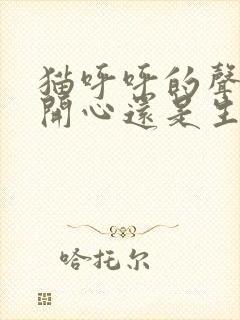 猫呼呼的聲
開心還是生
哈托尔